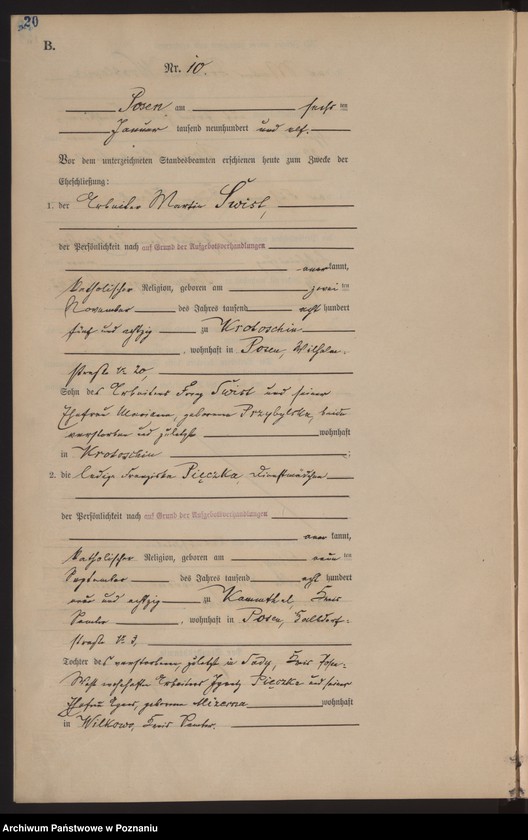 20
B.
Nr. 10.
Posen, am sechsten
Januar tausend neunhundert und elf.
Vor dem unterzeichneten Standesbeamten erschienen heute zum Zwecke der
Eheschließung:
1. der Arbeiter Martin Świst,
der Persönlichkeit nach auf Grund der Aufgebotsverhandlungen
anerkannt,
katholischer Religion, geboren am zweiten
November des Jahres tausend acht hundert
fünf und achtzig zu Krotoschin
, wohnhaft in Posen, Wilhelm-
straße 20,
Sohn des Arbeiters Franz Świst und seiner
Ehefrau Marianna, geborene Przybylska, beide
verstorben und zuletzt wohnhaft
in Krotoschin ;
2. die ledige Franziska Pięczka, Dienstmädchen
der Persönlichkeit nach auf Grund der Aufgebotsverhandlungen
anerkannt,
katholischer Religion, geboren am neunten
September des Jahres tausend acht hundert
neun und achtzig zu Kammthal, Kreis
Samter, wohnhaft in Posen,
straße No 3,
Tochter des verstorbenen, zuletzt in Sady, Kreis Posen-
West wohnhaften Arbeiters Ignatz Pięczka und seiner
Ehefrau Agnes, geborene Mizerna wohnhaft
in Wilkowo, Kreis Samter.
Archiwum Państwowe w Poznaniu